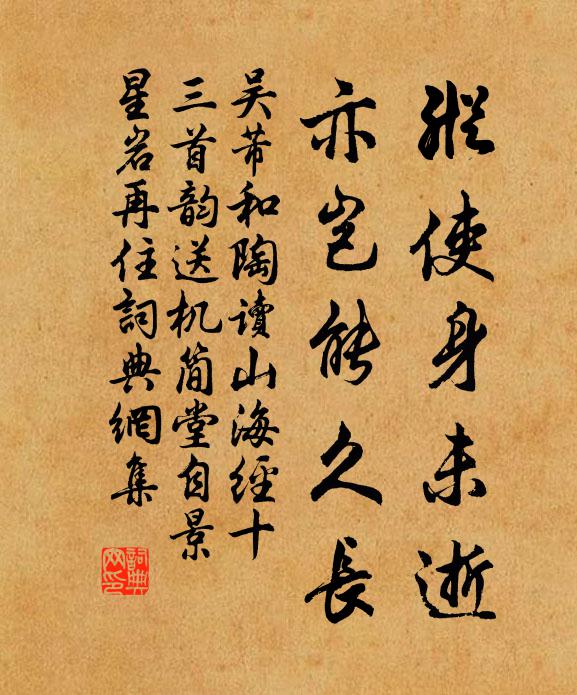 縱使身未逝
亦豈能久長
吴芾和陶讀山海經十
三首韵送机简堂自景
星岩再住詞典網集
詞典网印